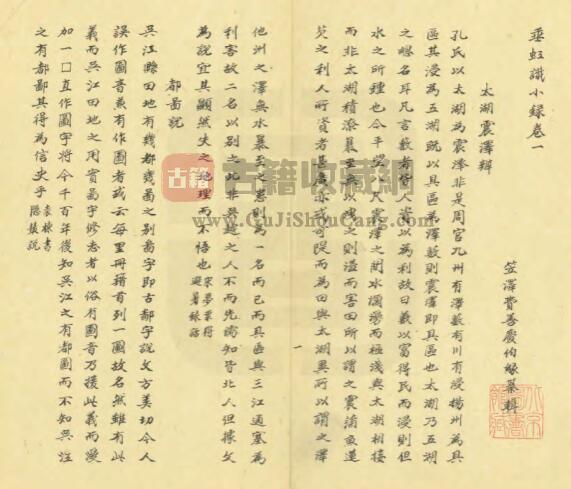 垂虹識小錄卷一
笠澤費善慶伯緣纂輯
太湖震澤辨
孔氏以太湖為震澤非是周官九州有澤藪有川有浸揚州為具
區其浸為五湖既以具區為澤藪則震澤即具區也太湖乃五湖
之總名耳凡言藪者皆人資以為利故曰藪以富得民而浸則但
水之所鍾也今平望八尺震澤之間水瀰漫而極淺與太湖相接
而非太湖積潦暴至無以洩之則溢而害田所以謂之震蒲魚蓮
芡之利人所資者甚廣亦或可隄而為田與太湖異所以謂之澤
他州之澤無水暴至之患則為一名而已而具區與三江通塞為
利害故二名以別之此非吳越之人不而先儒知皆北人但據文
為說宜其顯然失之地理而不悟也 宋夢得
避暑錄話
都啚說
吳江縣田地有幾都幾啚之別啚字即古鄙字說文方美切今人
誤作圖音兼有作圖者或云每里冊籍首列一圖故名然雖有此
義而吳江田地之用實啚字修志者以俗有圖音乃援此義而漫
加一囗直作圖字將令千百年後知吳江之有都圖而不知吳江
之有都鄙其得為信史乎 袁棟書
隱叢說
一
古籍
古籍收藏网
www.GuJiShouCang.com